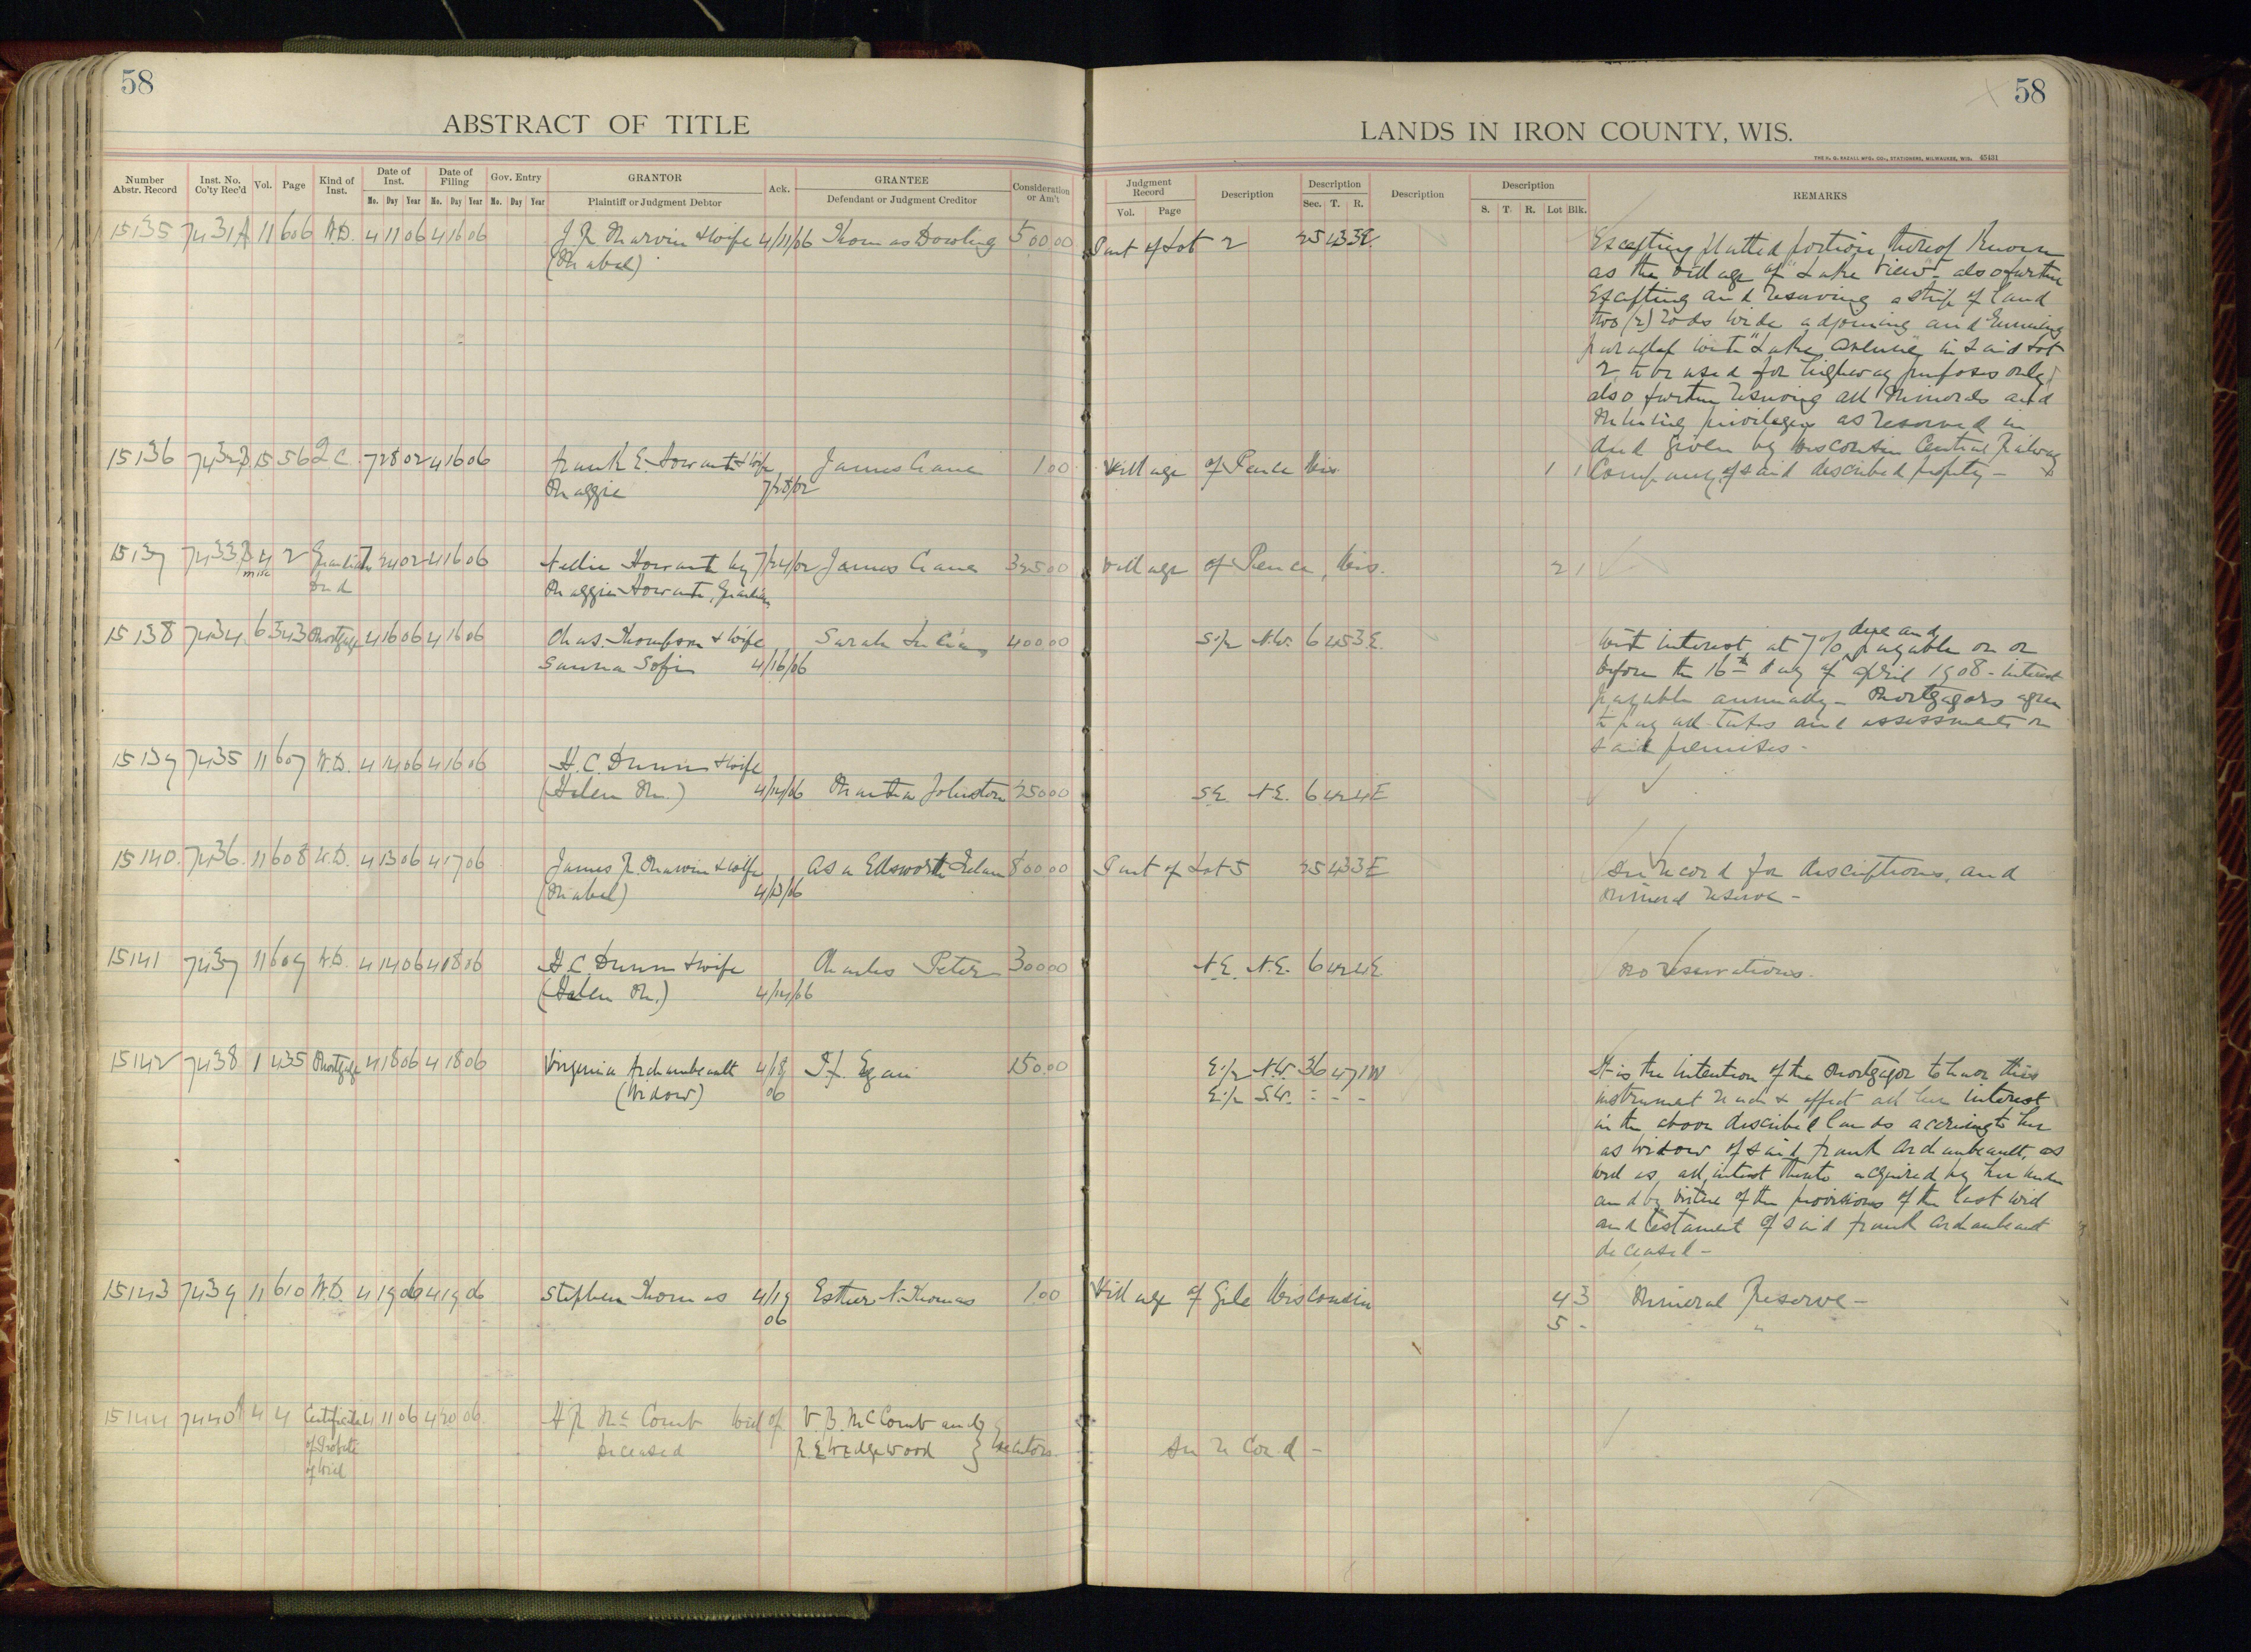 58
ABSTRACT OF TITLE
Number Abstr. Record
Inst. No. Co'ty Rec'd
Vol.
Page
Kind of Inst.
Date of Inst.
Mo. Day Year
Date of Filing
Mo. Day Year
Gov. Entry
Mo. Day Year
GRANTOR
Plaintiff or Judgment Debtor
Ack.
GRANTEE
Defendant or Judgment Creditor
Consideration or Am't
15135 7431A 11 606 W.D. 4 11 06 4 16 06 J R Marvin & wife 4/11/06 Thomas Dowling 500 00
(Mabel)
15136 7432B 15 56 Q C 7 28 02 4 16 06 Frank E Howarth & wife James Crane 1 00
Maggie 7/28/02
15137 7433B 4 2 Guardian 7 24 02 4 16 06 Nellie Howarth by 7/24/02 James Crane 325 00
misc Deed Maggie Howarth, Guardian
15138 7434 6 343 Mortgage 4 16 06 4 16 06 Chas. Thompson & wife Sarah 400 00
Sanna Sofia 4/16/06
15139 7435 11 607 W.D. 4 14 06 4 16 06 H. C. Dunn & wife
(Helen M.) 4/14/06 Martha Johnston 250 00
15140 7436 11 608 W.D. 4 13 06 4 17 06 James R. Marvin & wife Asa Edsworth 800 00
(Mabel) 4/13/06
15141 7437 11 609 W.D. 4 14 06 4 18 06 H. C. Dunn & wife Charles Peter 300 00
(Helen M.) 4/14/06
15142 7438 1 435 Mortgage 4 18 06 4 18 06 Virginia Archambeault 4/18 Egan 150 00
(Widow) 06
15143 7439 11 610 W.D. 4 19 06 4 19 06 Stephen Thomas 4/19 Esther N. Thomas 1 00
06
15144 7440A 4 4 Certificate 4 11 06 4 20 06 H R McComb Will of V. B. McComb and
of Probate Deceased R. E. Wedgewood } Executors
of Will
58
LANDS IN IRON COUNTY, WIS.
THE H. G. RAZALL MFG. CO., STATIONERS, MILWAUKEE, WIS. 45431
Judgment Record
Vol. Page
Description
Description
Sec. T. R.
Description
Description
S. T. R. Lot Blk.
REMARKS
Part of Lot 2 25 43 3E Excepting platted portion thereof known
as the village of "Lake View" - also further
Excepting and reserving a strip of land
two (2) rods wide adjoining and running
parallel with "Lake Avenue" in said Lot
2, to be used for highway purposes only,
also further reserving all minerals and
Mining privileges as reserved in
and given by Wisconsin Central Railway
Village of Pence Wis. 1 1 Company of said described property -
Village of Pence, Wis. 2 1
S 1/2 N.W. 6 45 3E With interest at 7% due and payable on or
before the 16th day of April 1908 - interest
payable annually - Mortgagors agree
to pay all taxes and assessments on
said premises -
S.E. N.E. 6 42 4E
Part of Lot 5 25 43 3E See record for descriptions, and
mineral reserve -
N.E. N.E. 6 42 4E no reservations.
E 1/2 N.W. 36 47 1W It is the intention of the Mortgagor to have this
E 1/2 S.W. " - - instrument reach & affect all her interest
in the above described lands accruing to her
as widow of said Frank Archambeault, as
well as, all interest thereto acquired by her under
and by virtue of the provisions of the last will
and testament of said Frank Archambeault
deceased -
Village of Gile Wisconsin 4 3 Mineral Reserve -
5 - "
See record -